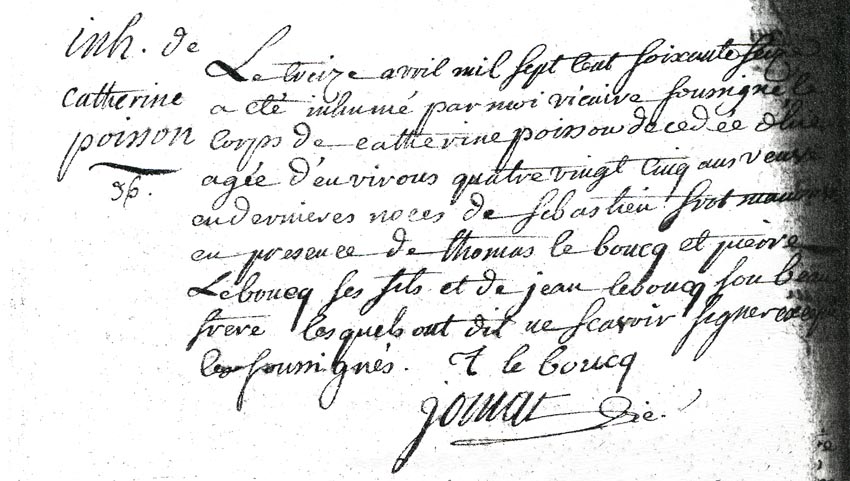 inh. de
catherine
poisson
36.
Le treize avril mil sept cent soixante seize
a eté inhumé par moi vicaire soussigné le
corps de catherine poisson decedée
agée d'environs quatre vingt cinq ans veuve
en dernieres noces de sebastien
en presence de thomas le boucq et pierre
Leboucq ses fils et de jean leboucq son beau
frere lesquels ont dit ne scavoir signer
les soussignés. T le boucq
vic.